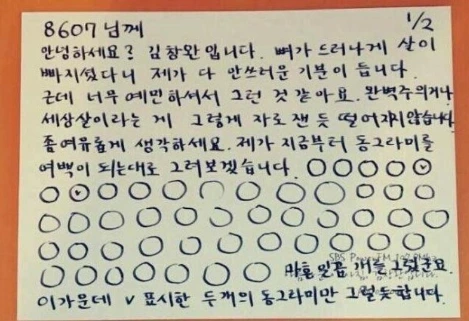 8607님께
1/2
안녕하세요? 김창완입니다. 뼈가 드러나게 살이
빠지셨다니 제가 다 안쓰러운 기분이 듭니다.
근데 너무 예민하셔서 그런 것 같아요. 완벽주의거나
세상살이라는 게 그렇게 자로 잰 듯 떨어지지 않습니다
좀 여유롭게 생각하세요. 제가 지금부터 동그라미를
여백이 되는대로 그려보겠습니다.
마흔 일곱 개를 그렸군요.
이 가운데 v 표시한 두 개의 동그라미만 그럴듯합니다.
SBS Power FM 107.7MHz